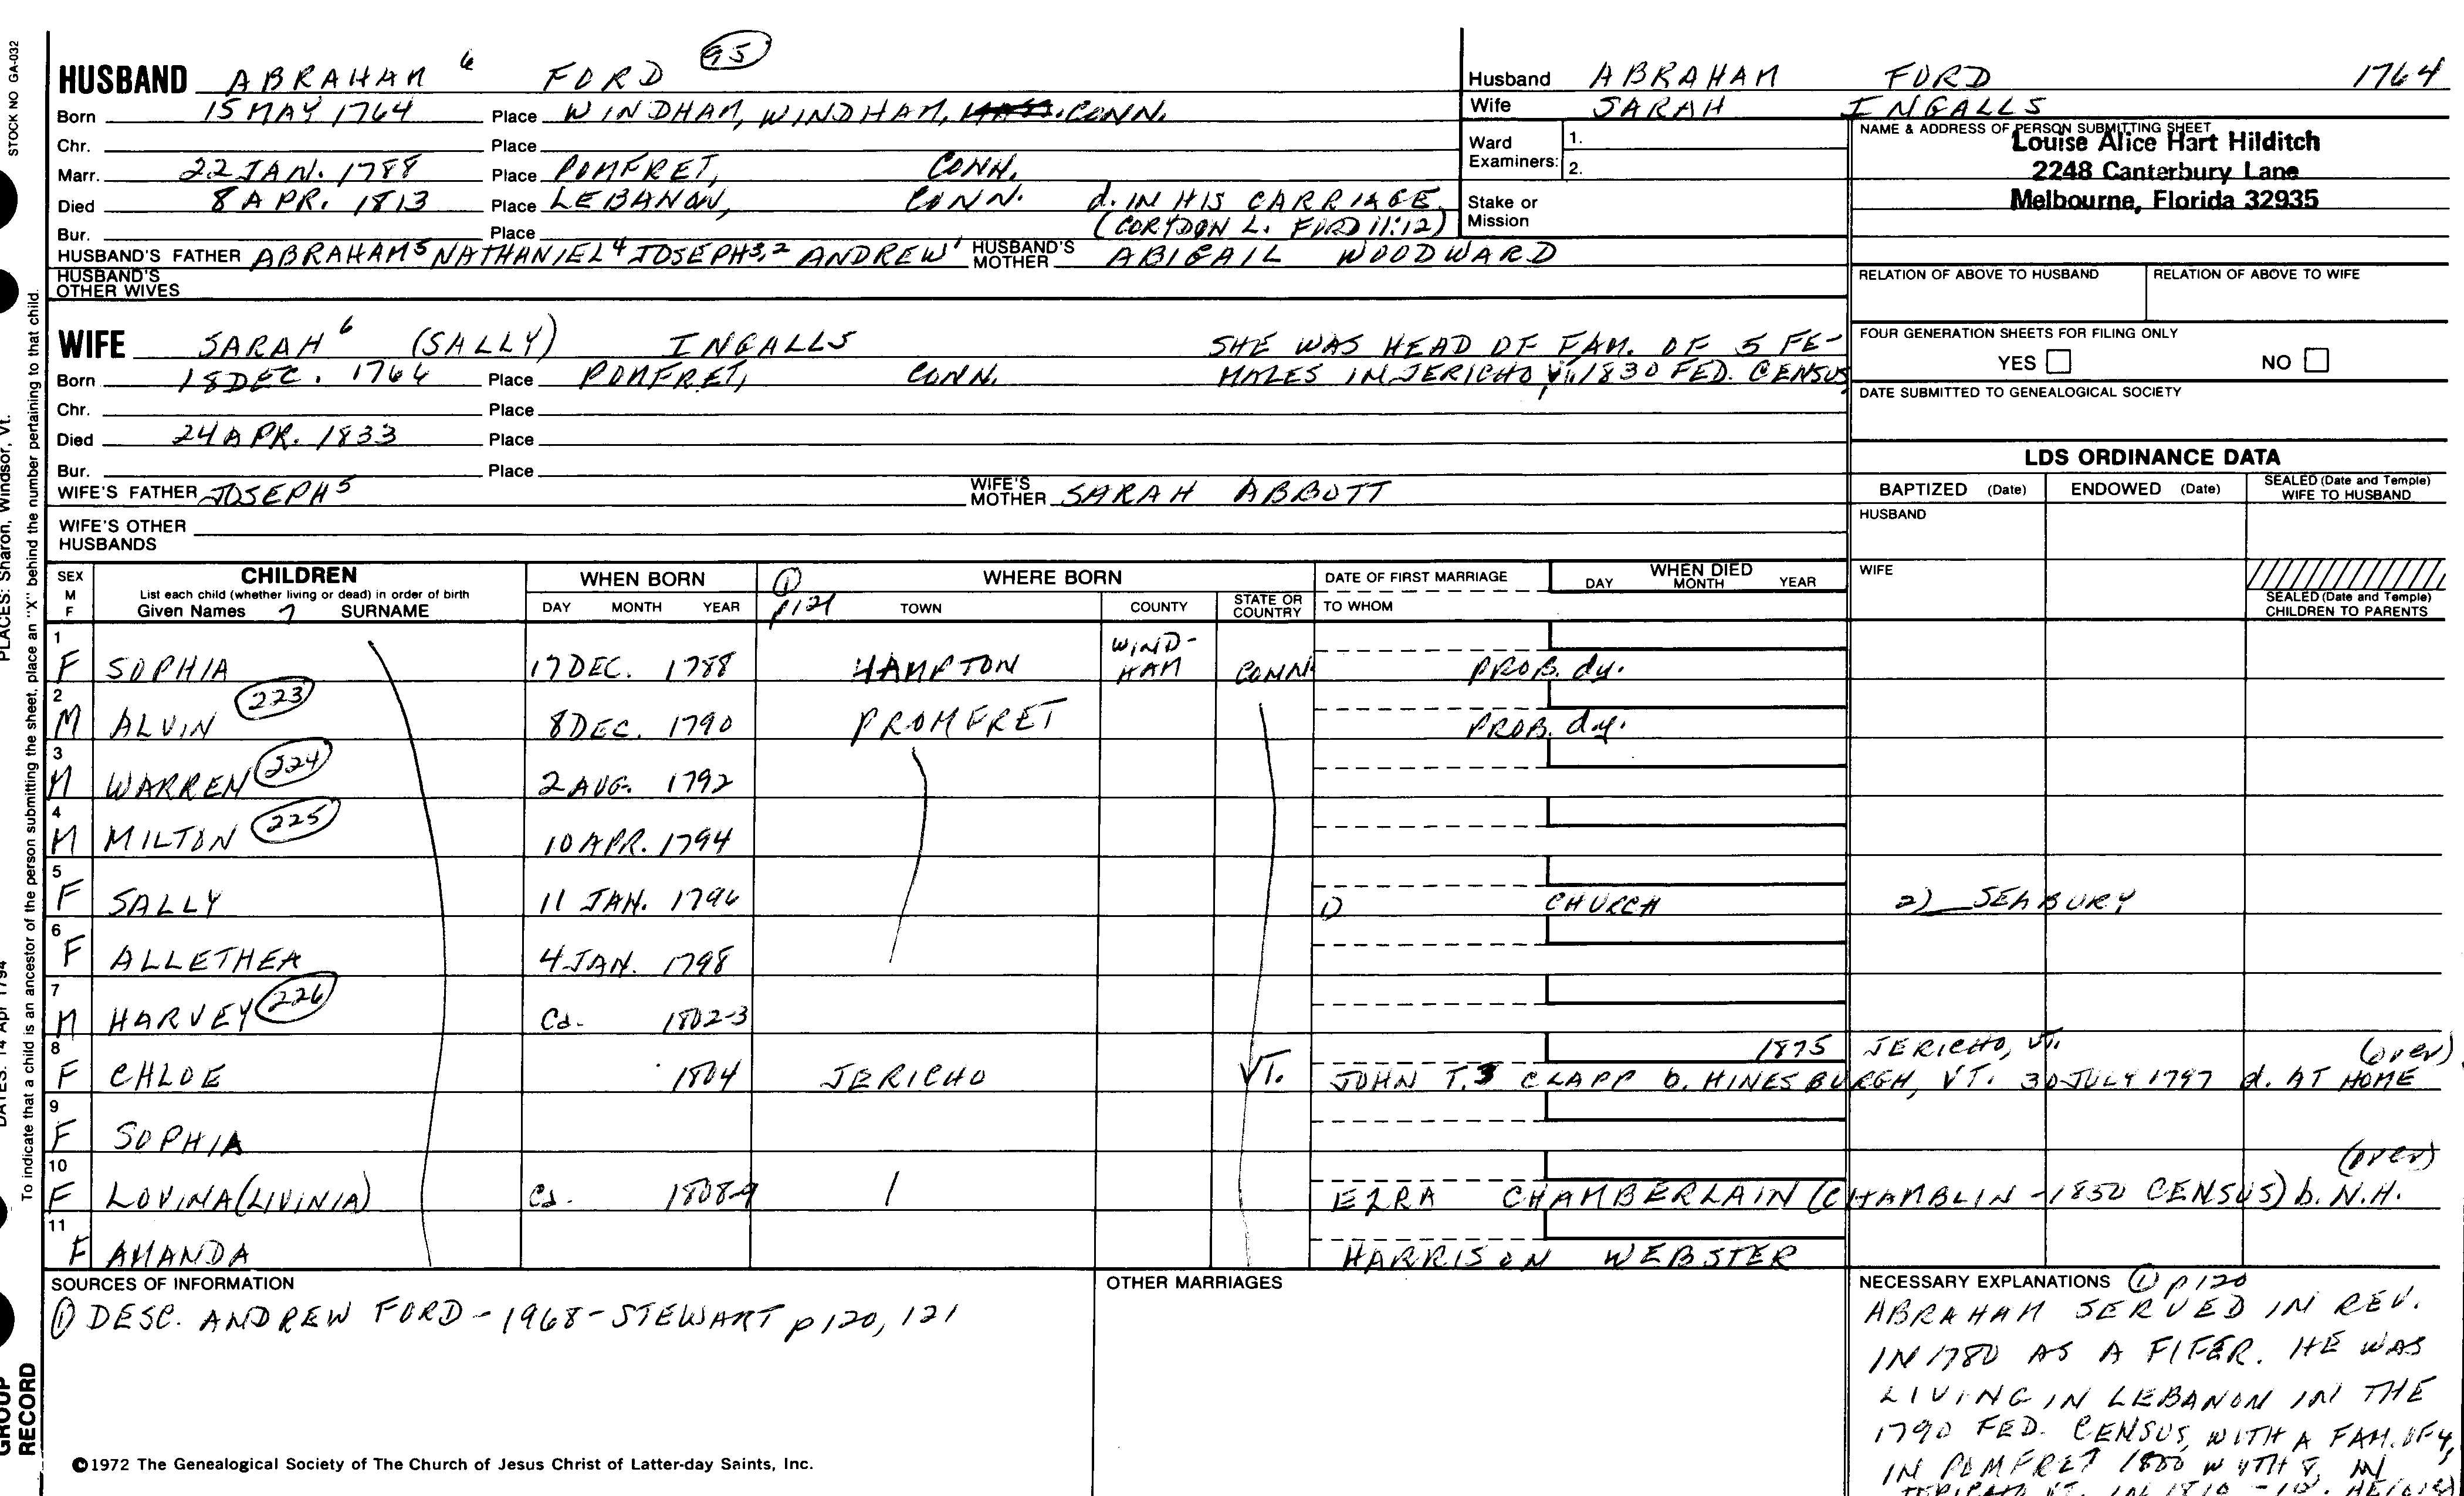 STOCK NO GA-032
HUSBAND ABRAHAM 6 FORD 95
Born 15 MAY 1764 Place WINDHAM, WINDHAM, MASS. CONN.
Chr. Place
Marr. 22 JAN. 1788 Place POMFRET, CONN.
Died 8 APR. 1813 Place LEBANON, CONN. d. IN HIS CARRIAGE
Bur. Place (CORYDON L. FORD 11:12)
HUSBAND'S FATHER ABRAHAM 5 NATHANIEL 4 JOSEPH 3,2 ANDREW 1 HUSBAND'S MOTHER ABIGAIL WOODWARD
HUSBAND'S OTHER WIVES
WIFE SARAH 6 (SALLY) INGALLS SHE WAS HEAD OF FAM. OF 5 FE-
Born 18 DEC. 1764 Place POMFRET, CONN. MALES IN JERICHO, Vt. 1830 FED. CENSUS
Chr. Place
Died 24 APR. 1833 Place
Bur. Place
WIFE'S FATHER JOSEPH 5 WIFE'S MOTHER SARAH ABBOTT
WIFE'S OTHER HUSBANDS
Husband ABRAHAM FORD 1764
Wife SARAH INGALLS
Ward Examiners: 1.
2.
Stake or Mission
NAME & ADDRESS OF PERSON SUBMITTING SHEET
Louise Alice Hart Hilditch
2248 Canterbury Lane
Melbourne, Florida 32935
RELATION OF ABOVE TO HUSBAND RELATION OF ABOVE TO WIFE
FOUR GENERATION SHEETS FOR FILING ONLY
YES NO
DATE SUBMITTED TO GENEALOGICAL SOCIETY
LDS ORDINANCE DATA
BAPTIZED (Date) ENDOWED (Date) SEALED (Date and Temple) WIFE TO HUSBAND
HUSBAND
WIFE
SEALED (Date and Temple) CHILDREN TO PARENTS
SEX M F CHILDREN WHEN BORN 1 WHERE BORN DATE OF FIRST MARRIAGE WHEN DIED
List each child (whether living or dead) in order of birth
Given Names 7 SURNAME DAY MONTH YEAR p121 TOWN COUNTY STATE OR COUNTRY TO WHOM DAY MONTH YEAR
1 F SOPHIA 17 DEC. 1788 HAMPTON WIND-HAM CONN PROB. dy.
2 M ALVIN 223 8 DEC. 1790 PROMFRET PROB. dy.
3 M WARREN 224 2 AUG. 1792
4 M MILTON 225 10 APR. 1794
5 F SALLY 11 JAN. 1796 1) CHURCH 2) SEABURY
6 F ALLETHEA 4 JAN. 1798
7 M HARVEY 226 Ca. 1802-3
8 F CHLOE 1804 JERICHO VT. 1875 JERICHO, VT. (over)
JOHN T. S CLAPP b. HINESBURGH, VT. 30 JULY 1797 d. AT HOME
9 F SOPHIA
10 F LOVINA (LIVINIA) Ca. 1808-9 (over)
EZRA CHAMBERLAIN (CHAMBLIN - 1850 CENSUS) b. N.H.
11 F AMANDA HARRISON WEBSTER
SOURCES OF INFORMATION
① DESC. ANDREW FORD - 1968 - STEWART p 120, 121
OTHER MARRIAGES
NECESSARY EXPLANATIONS ① p 120
ABRAHAM SERVED IN REV.
IN 1780 AS A FIFER. HE WAS
LIVING IN LEBANON IN THE
1790 FED. CENSUS, WITH A FAM. OF 4,
IN POMFRET 1800 WITH 8, IN
©1972 The Genealogical Society of The Church of Jesus Christ of Latter-day Saints, Inc.
PLACES: Sharon, Windsor, Vt.
DATES: 14 Apr 1794
To indicate that a child is an ancestor of the person submitting the sheet, place an "X" behind the number pertaining to that child.
GROUP
RECORD